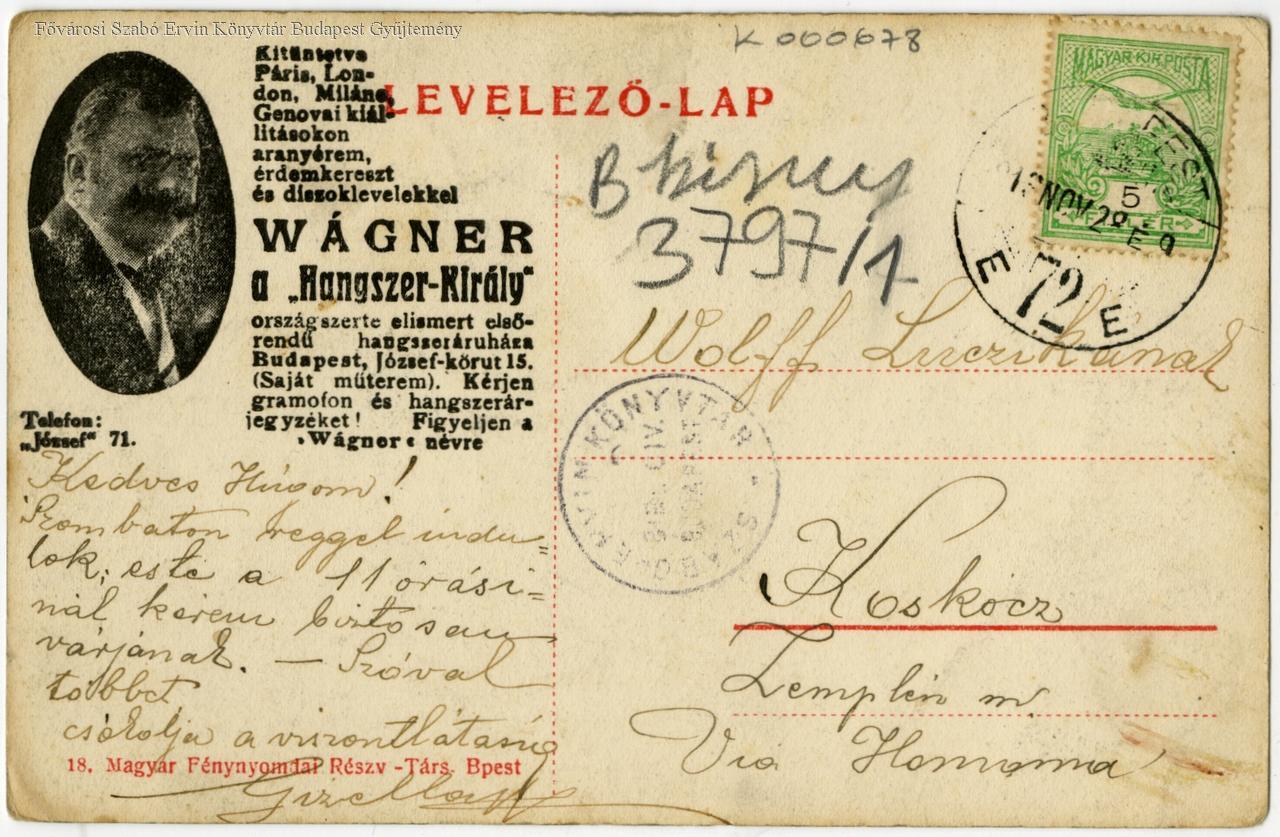 Fővárosi Szabó Ervin Könyvtár Budapest Gyűjtemény
K 000678
Kitüntetve
Páris, Lon-
don, Miláno,
Genovai kiál-
litásokon
aranyérem,
érdemkereszt
és diszoklevelekkel
WÁGNER
a „Hangszer-Király"
országszerte elismert első-
rendű hangszeráruháza
Budapest, József-körut 15.
(Saját műterem). Kérjen
gramofon és hangszerár-
jegyzéket! Figyeljen a
»Wágner« névre
Telefon:
„József" 71.
LEVELEZŐ-LAP
MAGYAR KIR. POSTA
5
FILLÉR
PEST
NOV 28
E 72 E
B
3797/1
Wolff Luczikának
SZABÓ ERVIN KÖNYVTÁR
Koskócz
Zemplén m
Via Homonna
Kedves Húgom!
Szombaton reggel indu-
lok; este a 11 órási-
nál kérem biztosan
várjának. — Szóval
többet
csókolja a viszontlátásig
18. Magyar Fénynyomdai Részv.-Társ. Bpest
Gizella